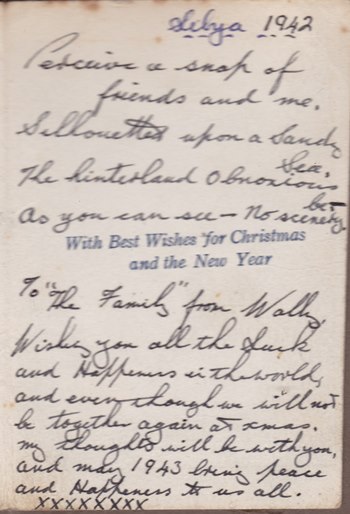 Libya 1942
Perceive a snap of
friends and me,
Silhouetted upon a Sandy
Sea.
The hinterland Obnoxious
be-
As you can see - No scenery
With Best Wishes for Christmas
and the New Year
To "The Family" from Wally,
Wishing you all the Luck
and Happiness in the world,
and even though we will not
be together again at xmas.
my thoughts will be with you,
and may 1943 bring peace
and Happiness to us all.
XXXXXXXX